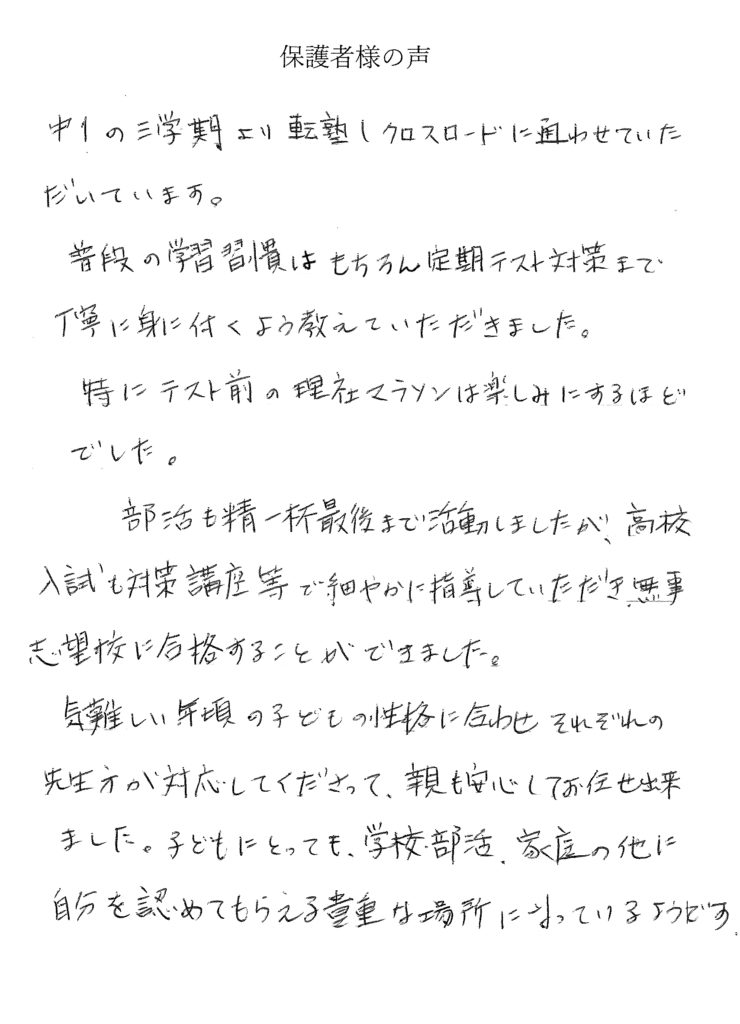 保護者様の声
中1の三学期より転塾しクロスロードに通わせていた
だいています。
普段の学習習慣はもちろん定期テスト対策まで
丁寧に身に付くよう教えていただきました。
特にテスト前の理社マラソンは楽しみにするほど
でした。
部活も精一杯最後まで活動しましたが、高校
入試も対策講座等で細やかに指導していただき無事
志望校に合格することができました。
気難しい年頃の子どもの性格に合わせそれぞれの
先生方が対応してくださって、親も安心してお任せ出来
ました。子どもにとっても、学校・部活、家庭の他に
自分を認めてもらえる貴重な場所になっているようです